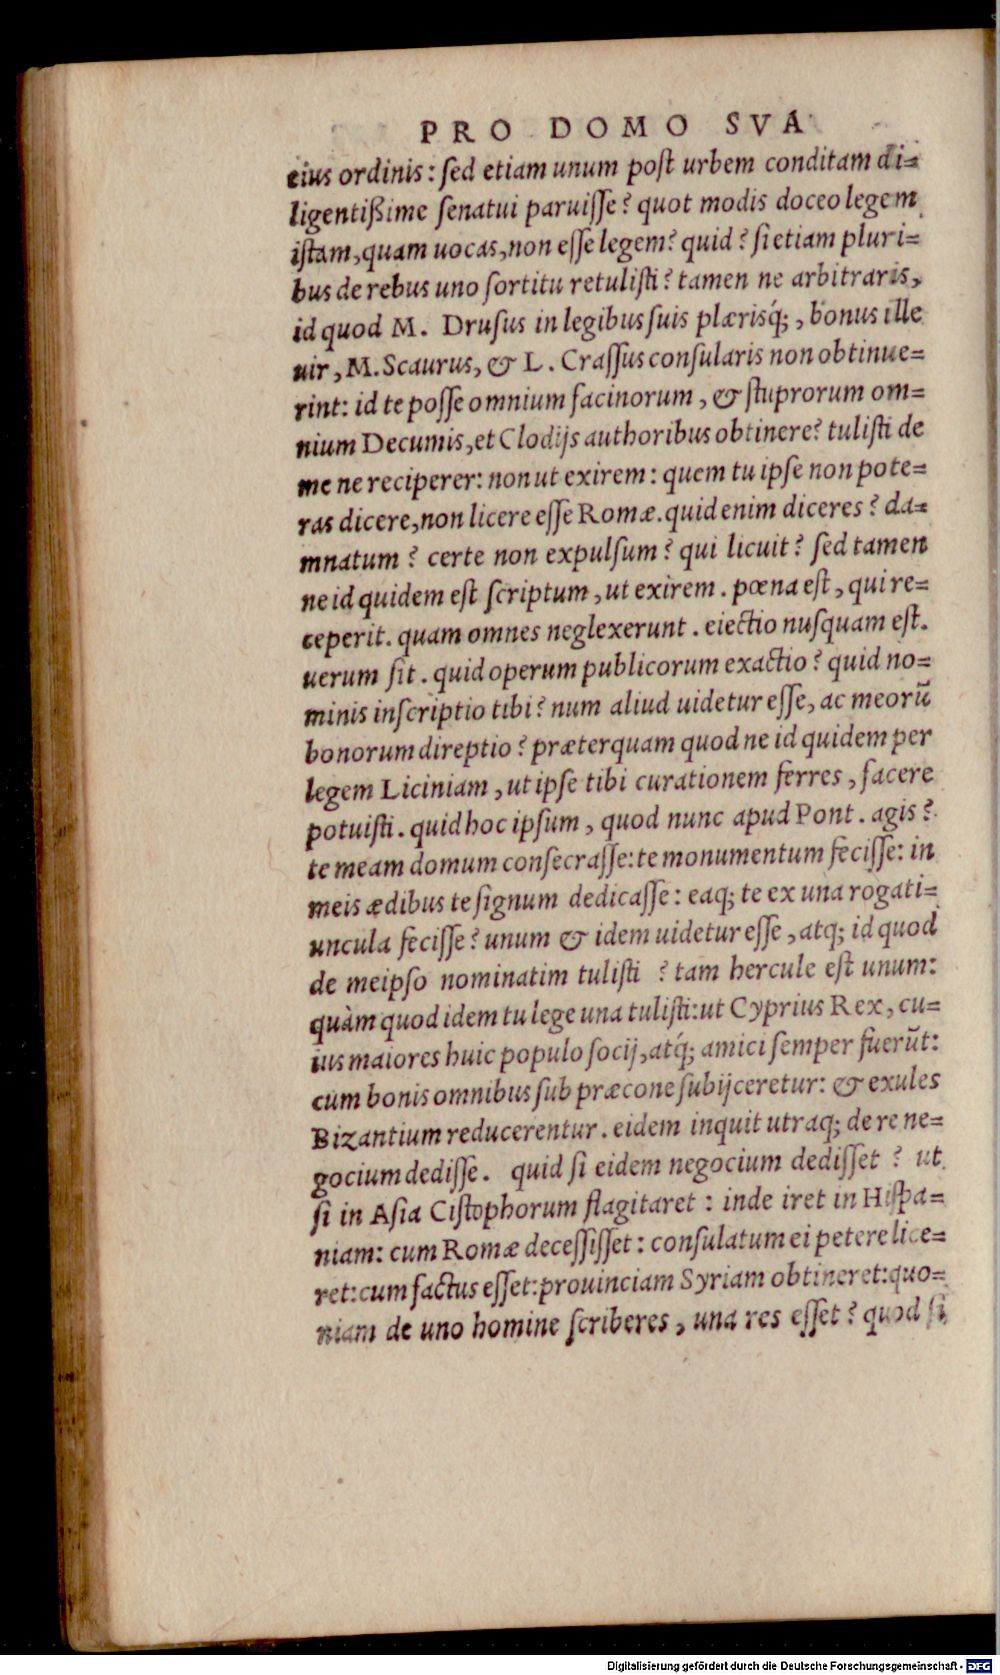 PRO DOMO SVA
eius ordinis: sed etiam unum post urbem conditam di=
ligentißime senatui paruisse? quot modis doceo legem
istam, quam uocas, non esse legem? quid? si etiam pluri=
bus de rebus uno sortitu retulisti? tamen ne arbitraris,
id quod M. Drusus in legibus suis plærisq́;, bonus ille
uir, M. Scaurus, & L. Crassus consularis non obtinue=
rint: id te posse omnium facinorum, & stuprorum om=
nium Decumis, et Clodijs authoribus obtinere? tulisti de
me ne reciperer: non ut exirem: quem tu ipse non pote=
ras dicere, non licere esse Romæ. quid enim diceres? da=
mnatum? certe non expulsum? qui licuit? sed tamen
ne id quidem est scriptum, ut exirem. pœna est, qui re=
ceperit. quam omnes neglexerunt. eiectio nusquam est.
uerum sit. quid operum publicorum exactio? quid no=
minis inscriptio tibi? num aliud uidetur esse, ac meorū
bonorum direptio? præterquam quod ne id quidem per
legem Liciniam, ut ipse tibi curationem ferres, facere
potuisti. quid hoc ipsum, quod nunc apud Pont. agis?
te meam domum consecrasse: te monumentum fecisse: in
meis ædibus te signum dedicasse: eaq; te ex una rogati=
uncula fecisse? unum & idem uidetur esse, atq; id quod
de meipso nominatim tulisti ? tam hercule est unum:
quàm quod idem tu lege una tulisti: ut Cyprius Rex, cu=
ius maiores huic populo socij, atq́; amici semper fuerūt:
cum bonis omnibus sub præcone subijceretur: & exules
Bizantium reducerentur. eidem inquit utraq; de re ne=
gocium dedisse. quid si eidem negocium dedisset ? ut
si in Asia Cistophorum flagitaret : inde iret in Hispa=
niam: cum Romæ decessisset: consulatum ei petere lice=
ret: cum factus esset: prouinciam Syriam obtineret: quo=
niam de uno homine scriberes, una res esset? quod si
Digitalisierung gefördert durch die Deutsche Forschungsgemeinschaft - DFG